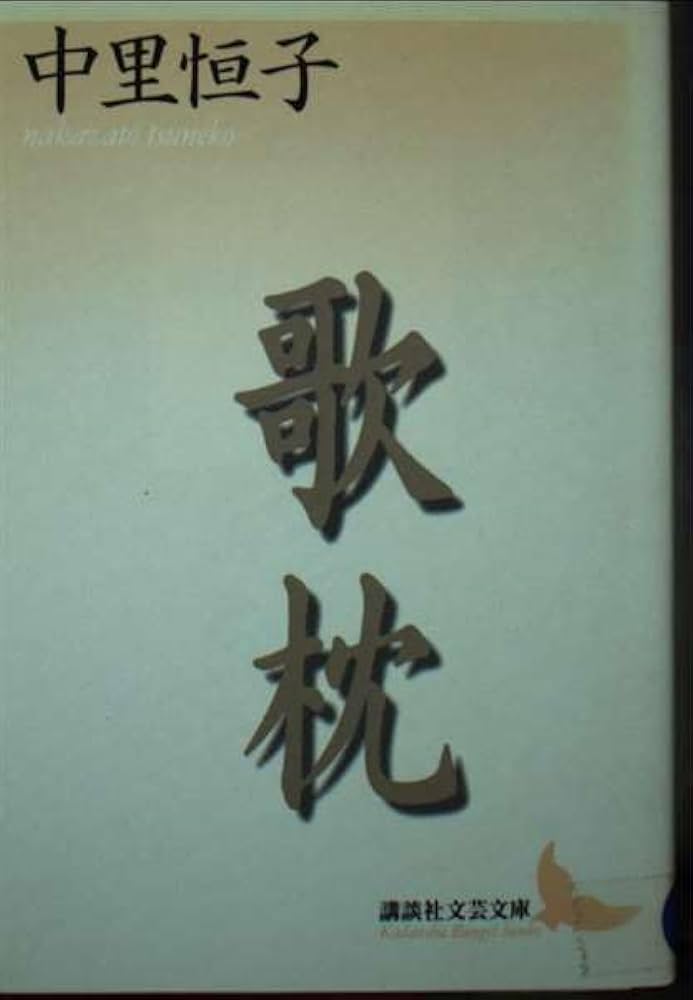 中里恒子
nakazato tsuneko
歌枕
講談社文芸文庫
Kodansha Bungei bunko